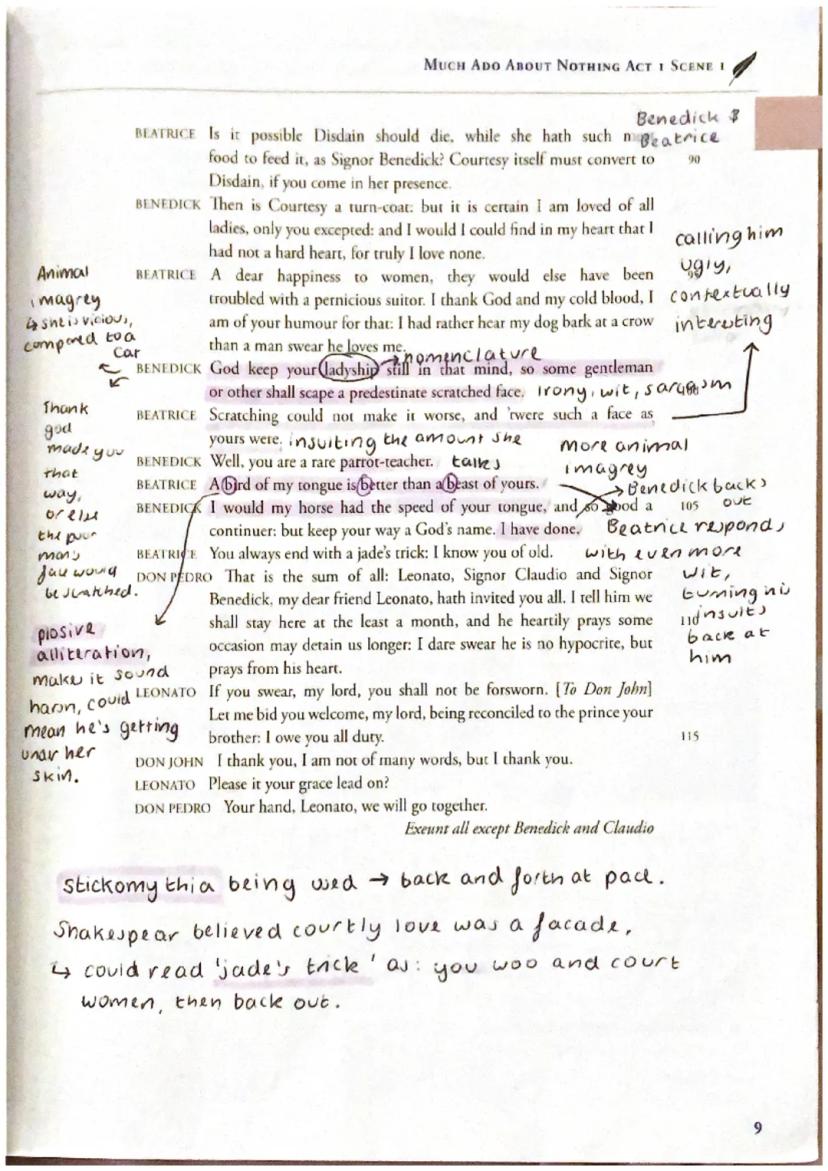 MUCH ADO ABOUT NOTHING ACT 1 SCENE 1
Benedick &
Beatrice
BEATRICE Is it possible Disdain should die, while she hath such
food to feed it, as Signor Benedick? Courtesy itself must convert to 90
Disdain, if you come in her presence.
BENEDICK Then is Courtesy a turn-coat: but it is certain I am loved of all
ladies, only you excepted: and I would I could find in my heart that I
had not a hard heart, for truly I love none.
BEATRICE A dear happiness to women, they would else have been
troubled with a pernicious suitor. I thank God and my cold blood, I
am of your humour for that: I had rather hear my dog bark at a crow
than a man swear he loves me.
BENEDICK God keep your ladyship still in that mind, so some gentleman
or other shall scape a predestinate scratched face.
BEATRICE Scratching could not make it worse, and 'twere such a face as
yours were.
BENEDICK Well, you are a rare parrot-teacher.
BEATRICE A bird of my tongue is better than a beast of yours.
BENEDICK I would my horse had the speed of your tongue, and so good a 105
continuer: but keep your way a God's name. I have done.
BEATRICE You always end with a jade's trick: I know you of old.
DON PEDRO That is the sum of all: Leonato, Signor Claudio and Signor
Benedick, my dear friend Leonato, hath invited you all. I tell him we
shall stay here at the least a month, and he heartily prays some 110
occasion may detain us longer: I dare swear he is no hypocrite, but
prays from his heart.
LEONATO If you swear, my lord, you shall not be forsworn. [To Don John]
Let me bid you welcome, my lord, being reconciled to the prince your
brother: I owe you all duty. 115
DON JOHN I thank you, I am not of many words, but I thank you.
LEONATO Please it your grace lead on?
DON PEDRO Your hand, Leonato, we will go together.
Exeunt all except Benedick and Claudio
Animal
imagrey
↳ she is vicious,
compared to a
car
Thank
god
made you
that
way,
or else
the poor
mans
face would
be scratched.
plosive
alliteration,
make it sound
harsh, could
mean he's getting
undr her
skin.
→ nomenclature
irony, wit, sarcasm
insulting the amount she
talks
calling him
ugly,
contextually
interesting
more animal
imagrey
→ Benedick backs
out
Beatrice responds
with even more
wit,
turning his
insults
back at
him
stickomythia being used → back and forth at pace.
Shakespear believed courtly love was a facade,
↳ could read 'jade's trick' as: you woo and court
women, then back out.
9